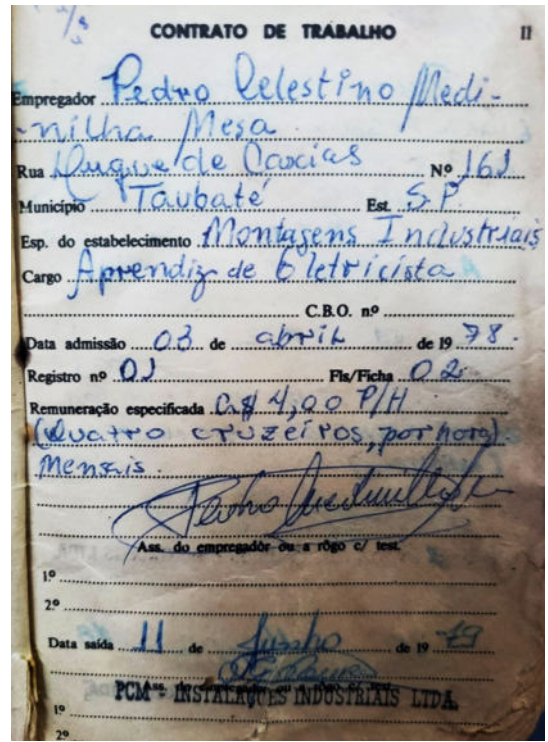 CONTRATO DE TRABALHO 11
Empregador Pedro Celestino Medi-
-nilha Mesa
Rua Duque de Caxias Nº 161
Município Taubaté Est. S.P.
Esp. do estabelecimento Montagens Industriais
Cargo Aprendiz de Eletricista
C.B.O. nº
Data admissão 03 de abril de 19 78.
Registro nº 01 Fls/Ficha 02
Remuneração especificada C.$ 4,00 P/H
(Quatro cruzeiros, por hora)
Mensais
Ass. do empregador ou a rôgo c/ test.
1º
2º
Data saída 11 de de 19 79
PCM - INSTALAÇÕES INDUSTRIAIS LTDA.
1º
2º